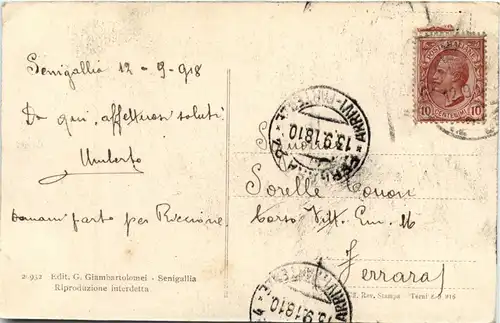 Senigallia 12 - 9 - 918
Da qui, affettuosi saluti
Umberto
Domani parto per Riccione.
2-932 Edit. G. Giambartolomei - Senigallia
Riproduzione interdetta
POSTE ITALIANE
10 CENTESIMI 10
ARRIVI-PARTENZE
13.9.18 10
Sorelle
Corso Vitt. Em. 16
Ferrara
13.9.18 10
Rev. Stampa Terni